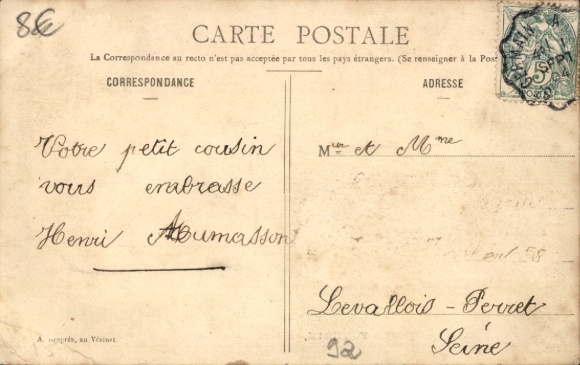 8€
CARTE POSTALE
La Correspondance au recto n'est pas acceptée par tous les pays étrangers. (Se renseigner à la Post
CORRESPONDANCE
ADRESSE
Votre petit cousin
vous embrasse
Henri
Mr et Mme
58
Levallois - Perret
Seine
A. au Vésinet
92